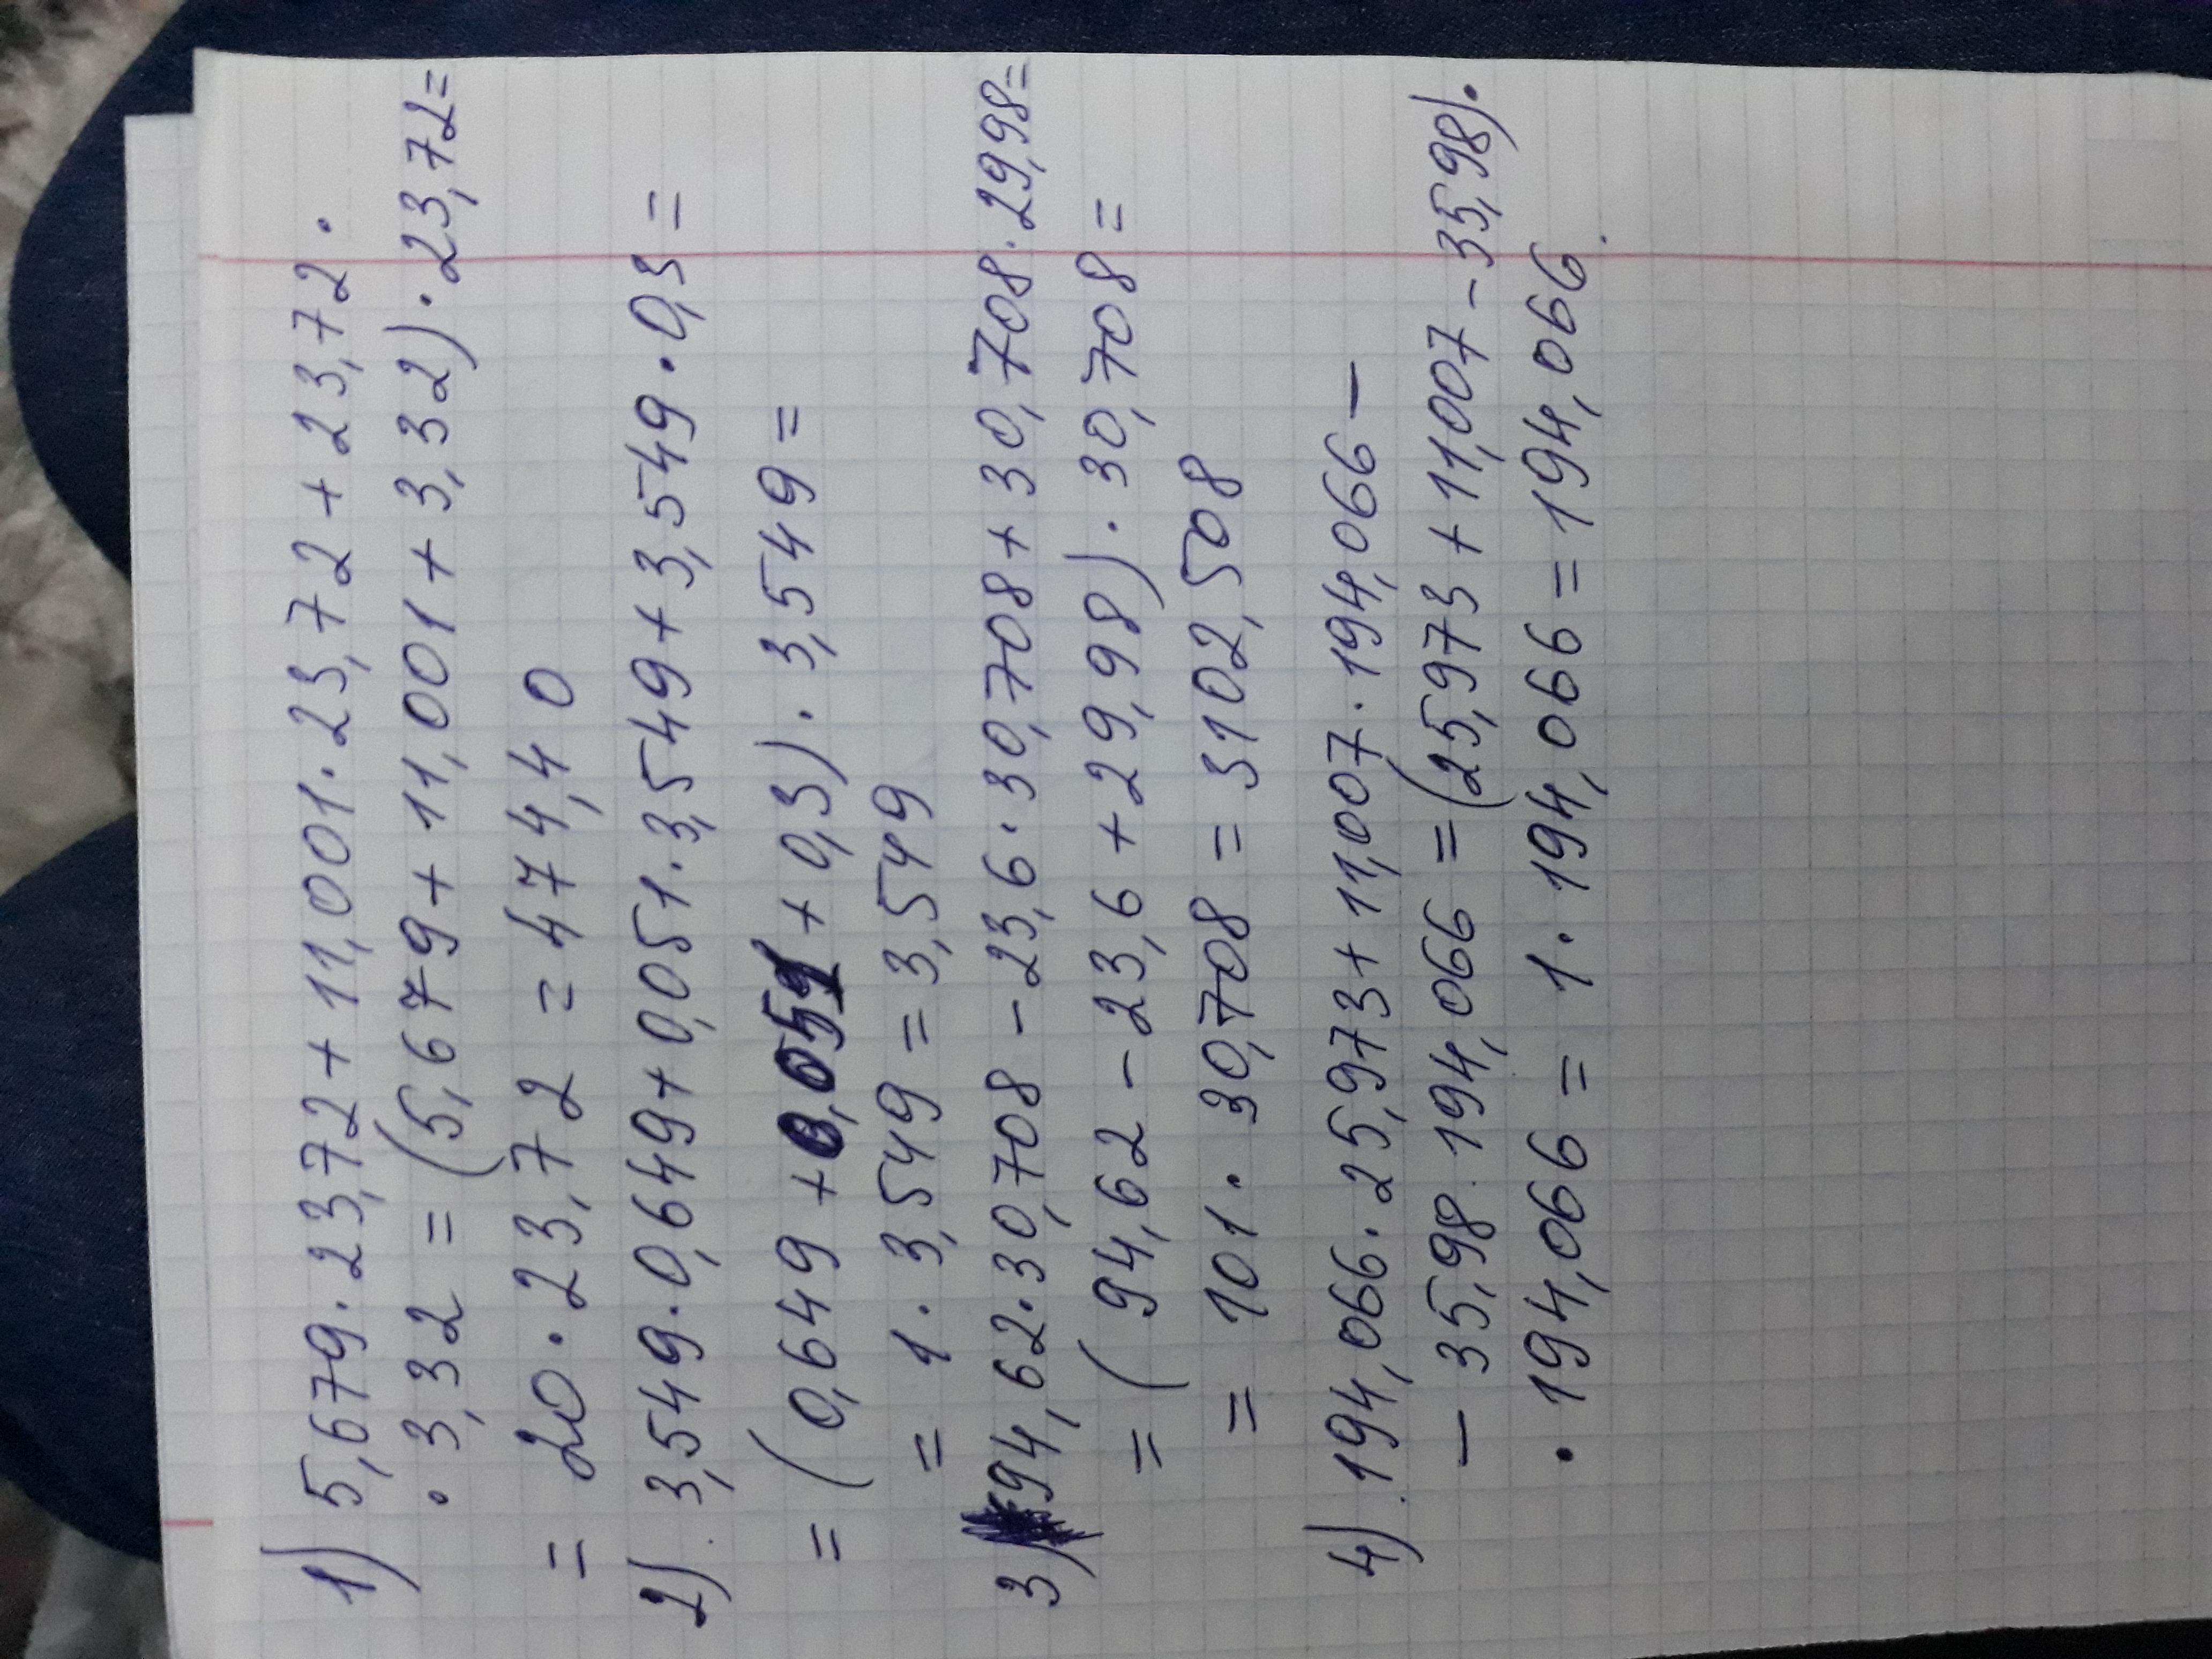 1) 5,679·23,72+11,001·23,72+23,72·
·3,32=(5,679+11,001+3,32)·23,72=
= 20·23,72=474,40
2). 3,549·0,649+0,051·3,549+3,549·0,3=
= (0,649+0,051+0,3)·3,549=
= 1·3,549=3,549
3) 94,62·30,708-23,6·30,708+30,708·29,98=
= (94,62-23,6+29,98)·30,708=
= 101·30,708=3102,508
4).194,066·25,973+11,007·194,066-
-35,98·194,066=(25,973+11,007-35,98)·
·194,066= 1·194,066=194,066.